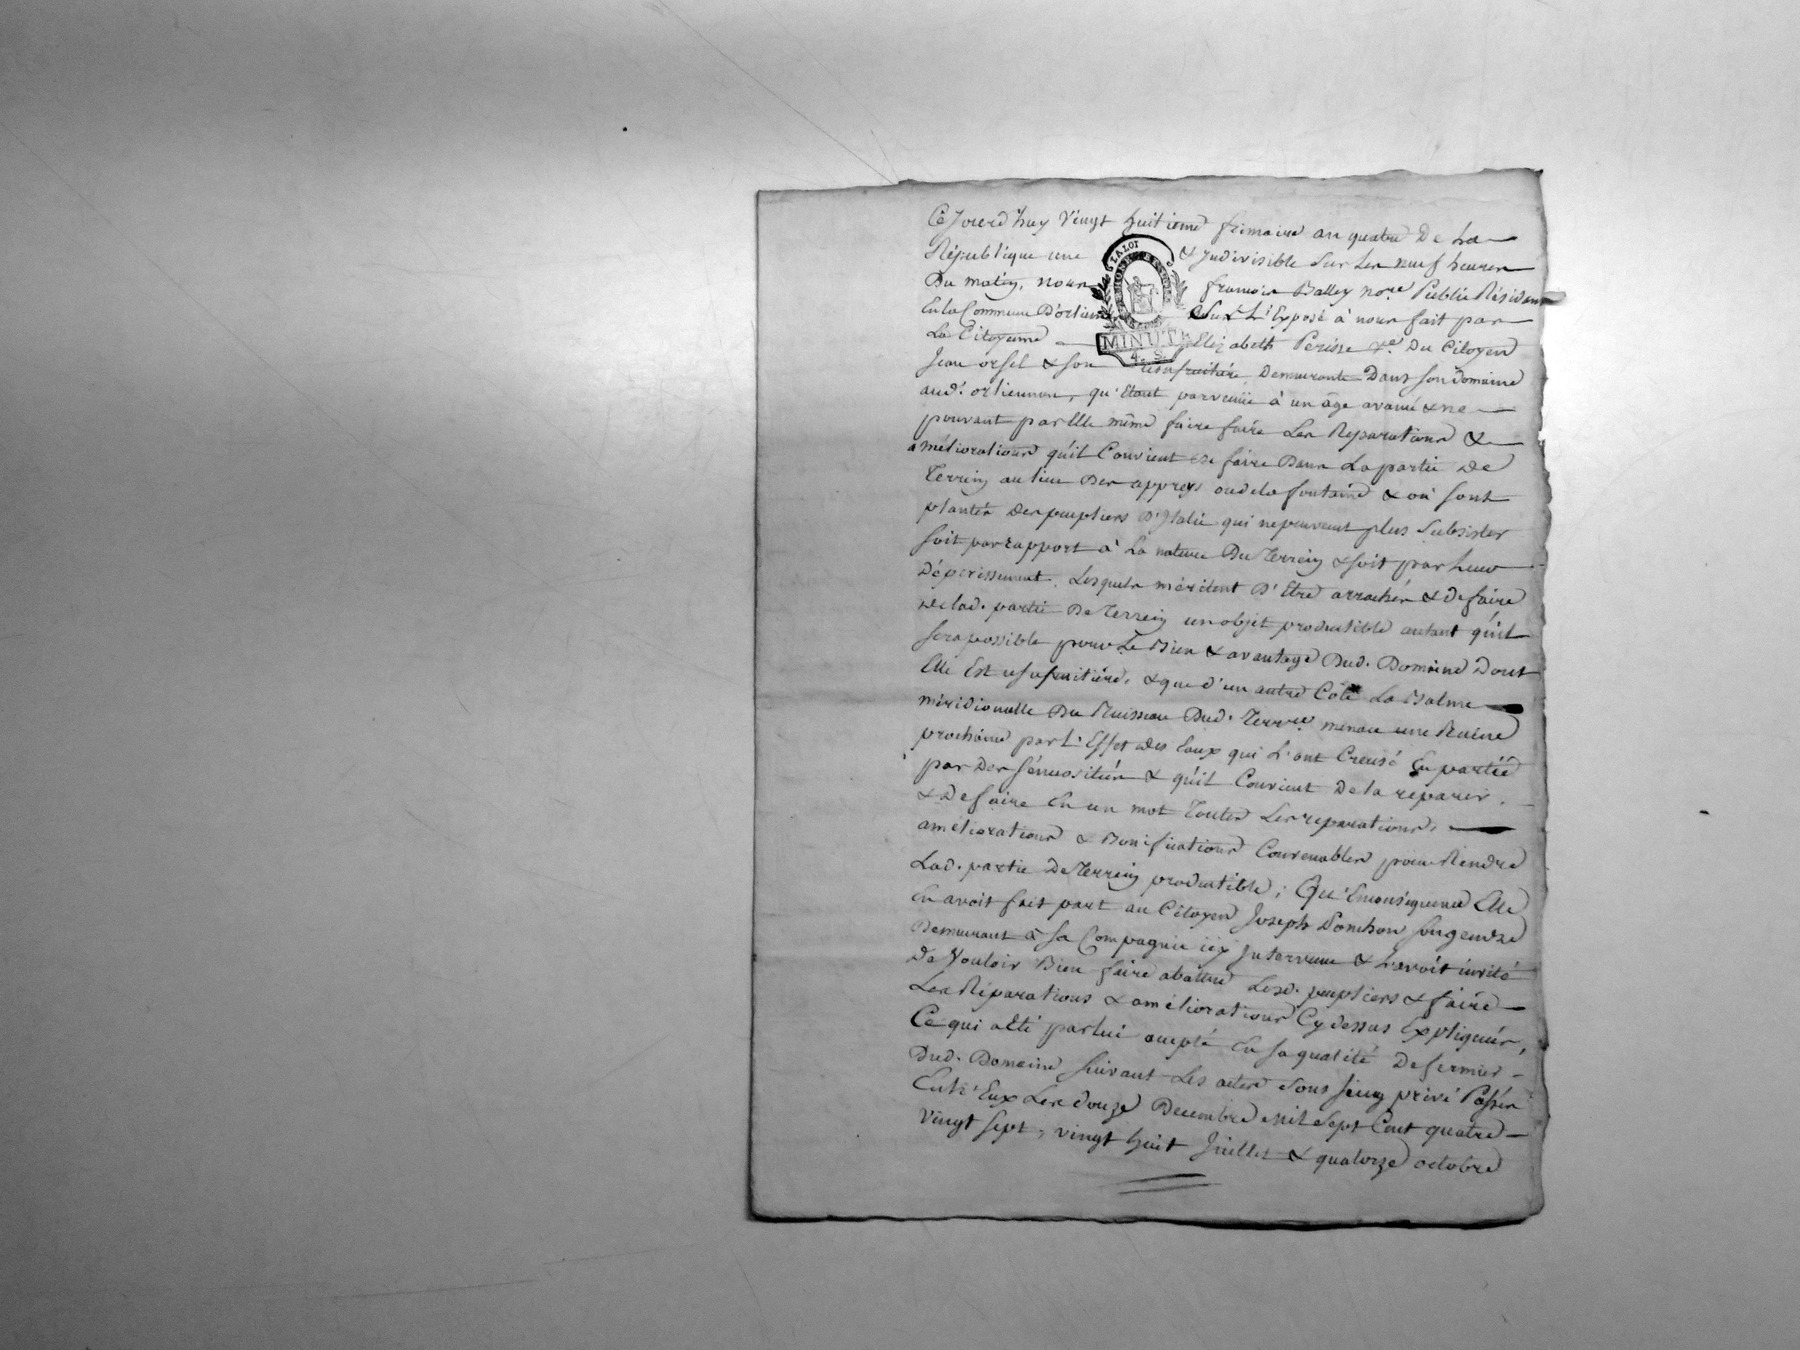 Cejourd'huy vingt huitieme frimaire an quatre De La
République une & Indivisible Sur Les neuf heures
Du matin, nous françois Balley nore. Public Résidant
En la Commune D'ortiem Sur L'Exposé à nous fait par
La Citoyenne Elizabeth Perisse ve. Du Citoyen
Jean orsel & son usufruitiére Demeurante Dans son Domaine
aud. ortiennon, qu'Etant parvenüe à un âge avancé & ne
pouvant par Elle même faire faire Les Reparations &
améliorations qu'il Convient De faire Dans La partie De
Terrein au lieu Des appreys oudela fontaine & où sont
plantés des peupliers D'Italie qui nepeuvent plus Subsister
soit par rapport à La nature Du Terrein & soit par Leur
Dépérissement. Lesquels méritent D'Etre arrachés & De faire
De lad. partie De Terrein un objet productible autant qu'il
sera possible pour Le Bien & avantage Dud. Domaine Dont
Elle Est usufruitiére, & que d'un autre Côté La Balme
méridionalle Du Ruisseau Dud. Terrein menace une Ruine
prochaine par L'Effet des Eaux qui L'ont Creusé En partie
par Des sénuosités & qu'il Convient De la reparer,
& De faire En un mot Toutes Les reparations,
améliorations & Bonifications Convenables pour Rendre
Lad. partie De Terrein productible; Qu'En conséquence Elle
En avoit fait part au Citoyen Joseph Ponchon son gendre
Demeurant à sa Compagnie icy Intervenu & L'avoit invité
De Vouloir Bien faire abattre Lesd. peupliers & faire
Les Réparations & améliorations Cy dessus Expliqués,
Ce qui a Eté par lui accepté En sa qualité De fermier
Dud. Domaine suivant Les actes Sous seing privé Passés
Entr'Eux Les douze Decembre mil Sept Cent quatre
vingt sept, vingt huit Juillet & quatorze octobre
LA LOI
MINUT
4. S.